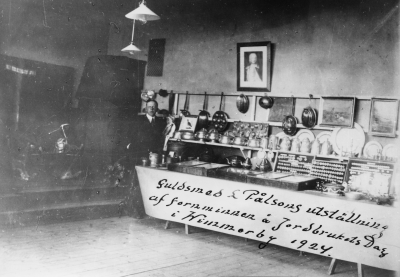 Guldsmed L Pålsons utställning
af fornminnen å Jordbrukets Dag
i Wimmerby 1924.